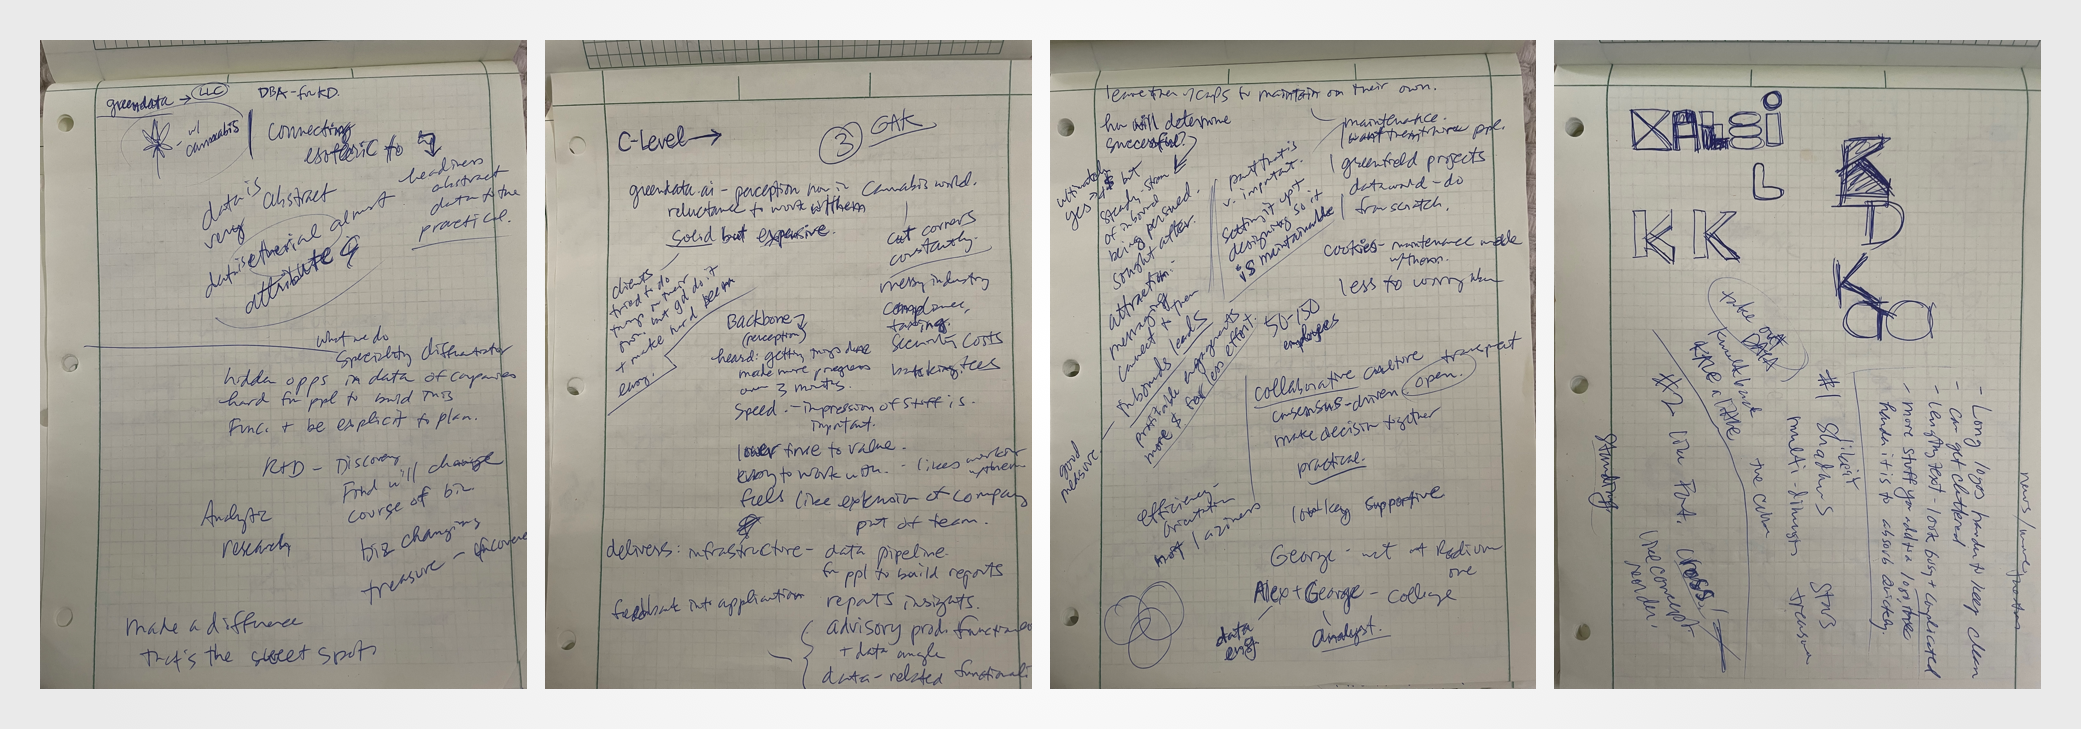 greendata → LLC
DBA - for KD.
w/ cannabis
connecting
esoteric to
headiness
abstract
data to the
practical.
data is
very abstract
data is etherial almost
attribute
what we do
Speciality differentiator
hidden opps in data of companies
hard for ppl to build this
Func. + be explicit to plan.
R+D - Discovery
Find will change
course of biz
Analytz
research
biz changing
treasure - uncover
made a difference
that's the sweet spot
C-Level →
3
GAK
greendata.ai - perception now in Cannabis world.
reluctance to work w/ them
solid but expensive.
cut corners
constantly.
messy industry
compliance,
taxing.
security costs
banking fees
clients
tried to do
things on their
own. but gd do it
+ make
easy.
Backbone
(perception)
heard: getting things done
make more progress
over 3 months.
Speed. - impression of stuff is
important.
lower time to value.
Easy to work with. - likes working
w/ them
feels like extension of company
part of team.
delivers: infrastructure - data pipeline
for ppl to build reports
feedback into application
reports insights.
advisory prod. function
+ data angle
data-related
leave them w/ caps to maintain on their own.
how will determine
successful?
ultimately
yes $ but
steady stream
of inbound
being pursued.
sought after.
attraction.
messaging
connect + then
inbounds leads
Profitable engagements
more $ for less effort.
good
measure
part that is
v. important.
setting it up +
designing so it
is maintainable
maintenance.
greenfield projects
dataworld - do
from scratch.
cookies - maintenance mode
w/ them.
less to worry
50-150
employees
collaborative culture
open. transparent
consensus-driven.
make decision together
practical.
efficiency-
orientation
not laziness
low key supportive
George - met at Radium
one
Alex + George - college
data
eng
analyst.
KALEi
L
K
D
K K
K
take off
DATA
news/
- Long logos harder to keep clean
- can get cluttered
- lengthy text - looks busy + complicated
- more stuff you add to a logo, the
harder it is to absorb quickly.
#1 Shadows
Stars
multi-
treasure
the cube
#2 Line Font. cross!
like concept
render.
Standing